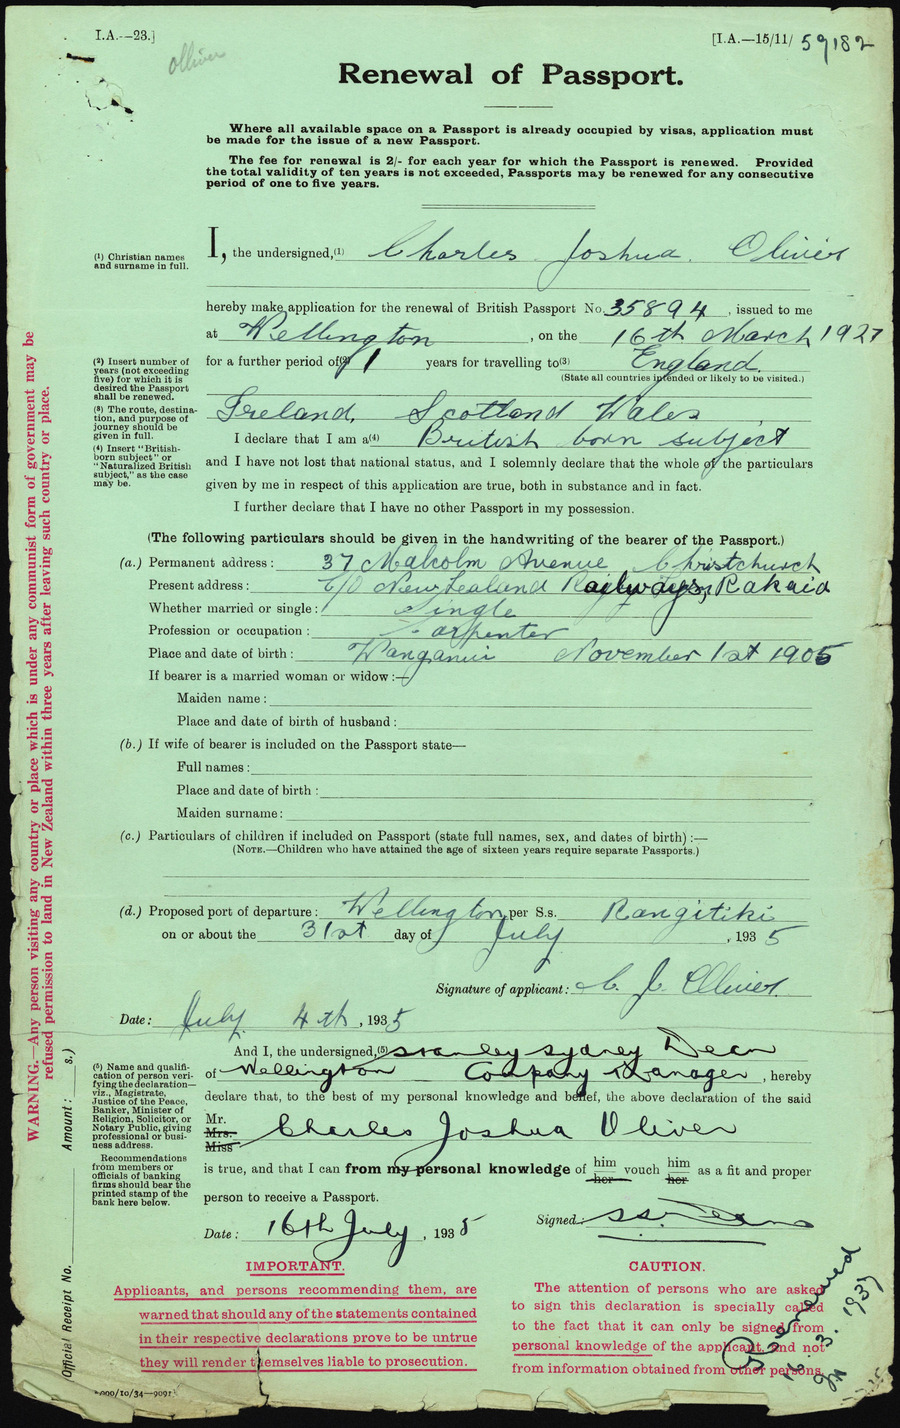 I.A.—23.]
[I.A.—15/11/ 59182
olliver
Renewal of Passport.
Where all available space on a Passport is already occupied by visas, application must
be made for the issue of a new Passport.
The fee for renewal is 2/- for each year for which the Passport is renewed. Provided
the total validity of ten years is not exceeded, Passports may be renewed for any consecutive
period of one to five years.
(1) Christian names
and surname in full.
I, the undersigned,(1) Charles Joshua Oliver
hereby make application for the renewal of British Passport No. 35894, issued to me
at Wellington, on the 16th March 1927
(2) Insert number of
years (not exceeding
five) for which it is
desired the Passport
shall be renewed.
for a further period of(2) 1 years for travelling to(3) England.
(State all countries intended or likely to be visited.)
(3) The route, destina-
tion, and purpose of
journey should be
given in full.
Ireland, Scotland Wales
(4) Insert "British-
born subject" or
"Naturalized British
subject," as the case
may be.
I declare that I am a(4) British born subject
and I have not lost that national status, and I solemnly declare that the whole of the particulars
given by me in respect of this application are true, both in substance and in fact.
I further declare that I have no other Passport in my possession.
(The following particulars should be given in the handwriting of the bearer of the Passport.)
(a.) Permanent address: 37 Malcolm Avenue Christchurch
Present address: C/O New Zealand Railways, Rakaia
Whether married or single: Single
Profession or occupation: Carpenter
Place and date of birth: Wanganui November 1st 1905
If bearer is a married woman or widow:—
Maiden name:
Place and date of birth of husband:
(b.) If wife of bearer is included on the Passport state—
Full names:
Place and date of birth:
Maiden surname:
(c.) Particulars of children if included on Passport (state full names, sex, and dates of birth):—
(NOTE.—Children who have attained the age of sixteen years require separate Passports.)
(d.) Proposed port of departure: Wellington per S.s. Rangitiki
on or about the 31st day of July, 1935
Signature of applicant: C. J. Olliver.
Date: July 4th, 1935
(5) Name and qualifi-
cation of person veri-
fying the declaration—
viz., Magistrate,
Justice of the Peace,
Banker, Minister of
Religion, Solicitor, or
Notary Public, giving
professional or busi-
ness address.
Recommendations
from members or
officials of banking
firms should bear the
printed stamp of the
bank here below.
And I, the undersigned,(5) Stanley Sydney Dean
of Wellington Company Manager, hereby
declare that, to the best of my personal knowledge and belief, the above declaration of the said
Mr.
Mrs.
Miss
Charles Joshua Oliver
is true, and that I can from my personal knowledge of him her vouch him her as a fit and proper
person to receive a Passport.
Date: 16th July, 1935
Signed: S S Dean
IMPORTANT.
Applicants, and persons recommending them, are
warned that should any of the statements contained
in their respective declarations prove to be untrue
they will render themselves liable to prosecution.
CAUTION.
The attention of persons who are asked
to sign this declaration is specially called
to the fact that it can only be signed from
personal knowledge of the applicant, and not
from information obtained from other persons.
Renewed
16.3.1937
WARNING.—Any person visiting any country or place which is under any communist form of government may be
refused permission to land in New Zealand within three years after leaving such country or place.
Official Receipt No. Amount: s.)
000/10/34—9091